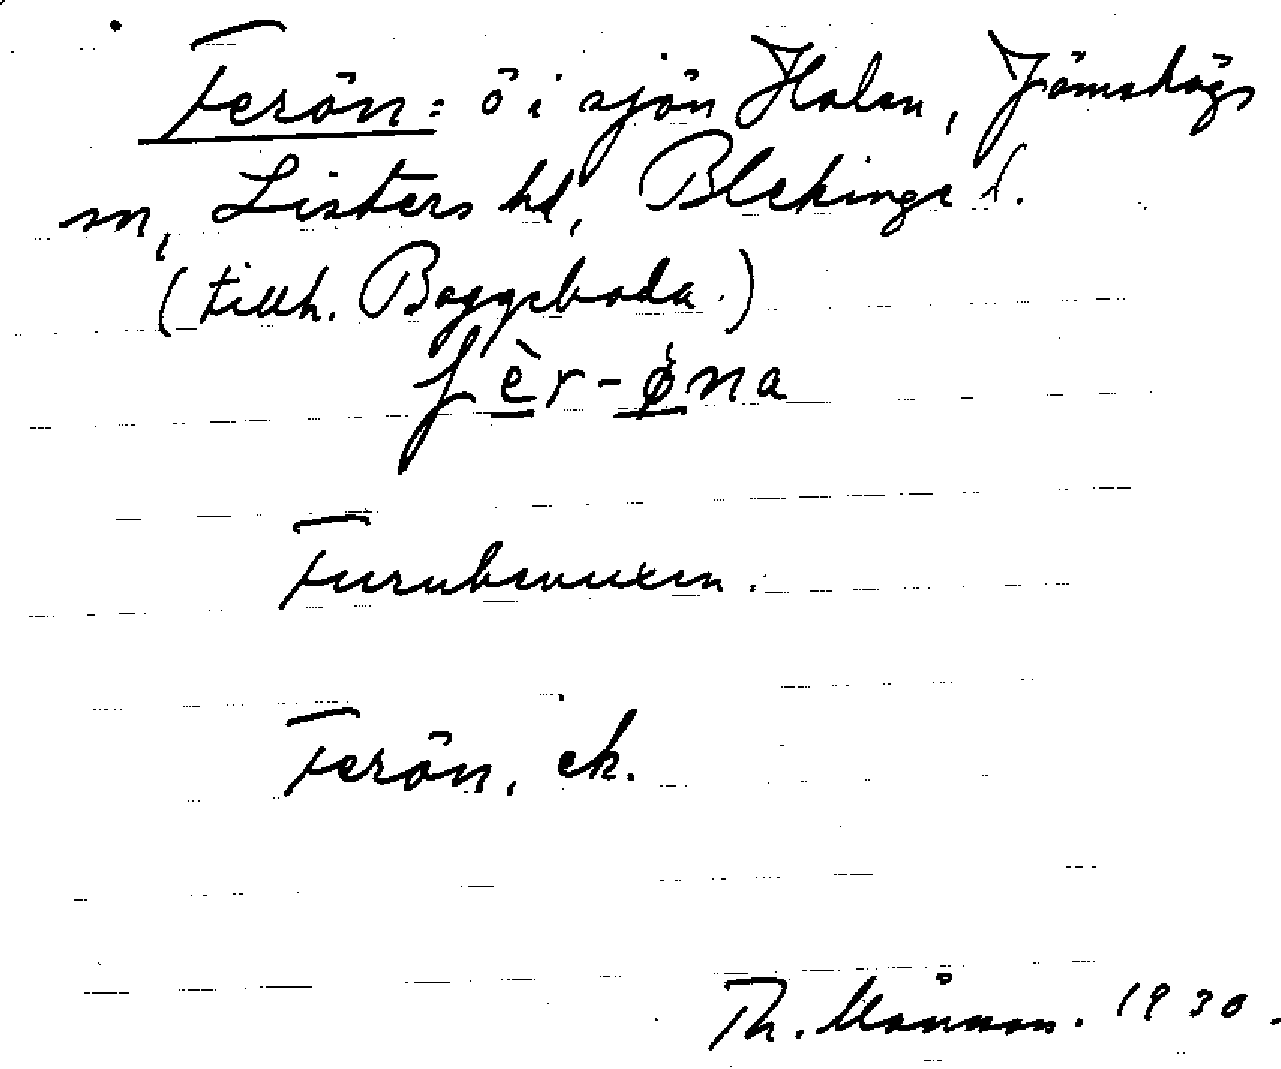 Ferön: ö i sjön Halen, Jämshögs
sn, Listers hd, Blekinge l.
(tillh. Boggeboda.)
fèr-ǿna
Furubevuxen.
Ferön, ek.
Th. Månsson. 1930.